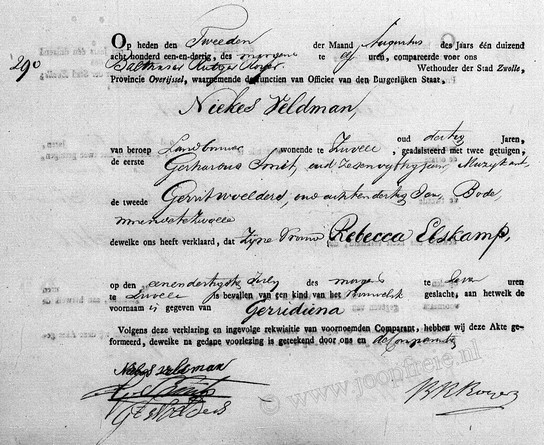 Op heden den Tweeden der Maand Augustus des Jaars één duizend
290
acht honderd een-en-dertig, des morgens te uren, compareerde voor ons
Balthasar Rutger Wethouder der Stad Zwolle,
Provincie Overijssel, waarnemende de functien van Officier van den Burgelijken Staat,
Niekes Veldman,
oud dertig Jaren,
van beroep Landbouwer wonende te Zwolle, geadsisteerd met twee getuigen,
de eerste Gerhardus Smit, oud zesenvyftig Jaar, Muzykant
de tweede Gerrit Woelders, oud achtendertig Jaar, Bode,
Zwolle
dewelke ons heeft verklaard, dat Zijne Vrouw Rebecca Elskamp,
op den eenendertigsten July des morgens te uren
te Zwolle is bevallen van een kind van het Vrouwelijk geslacht, aan hetwelk de
voornaam is gegeven van Gerridiena
Volgens deze verklaring en ingevolge rekwisitie van voornoemden Comparant, hebben wij deze Akte ge-
formeerd, dewelke na gedane voorlezing is geteekend door ons en de Comparanten
Niekes veldman
© www.joopfreie.nl